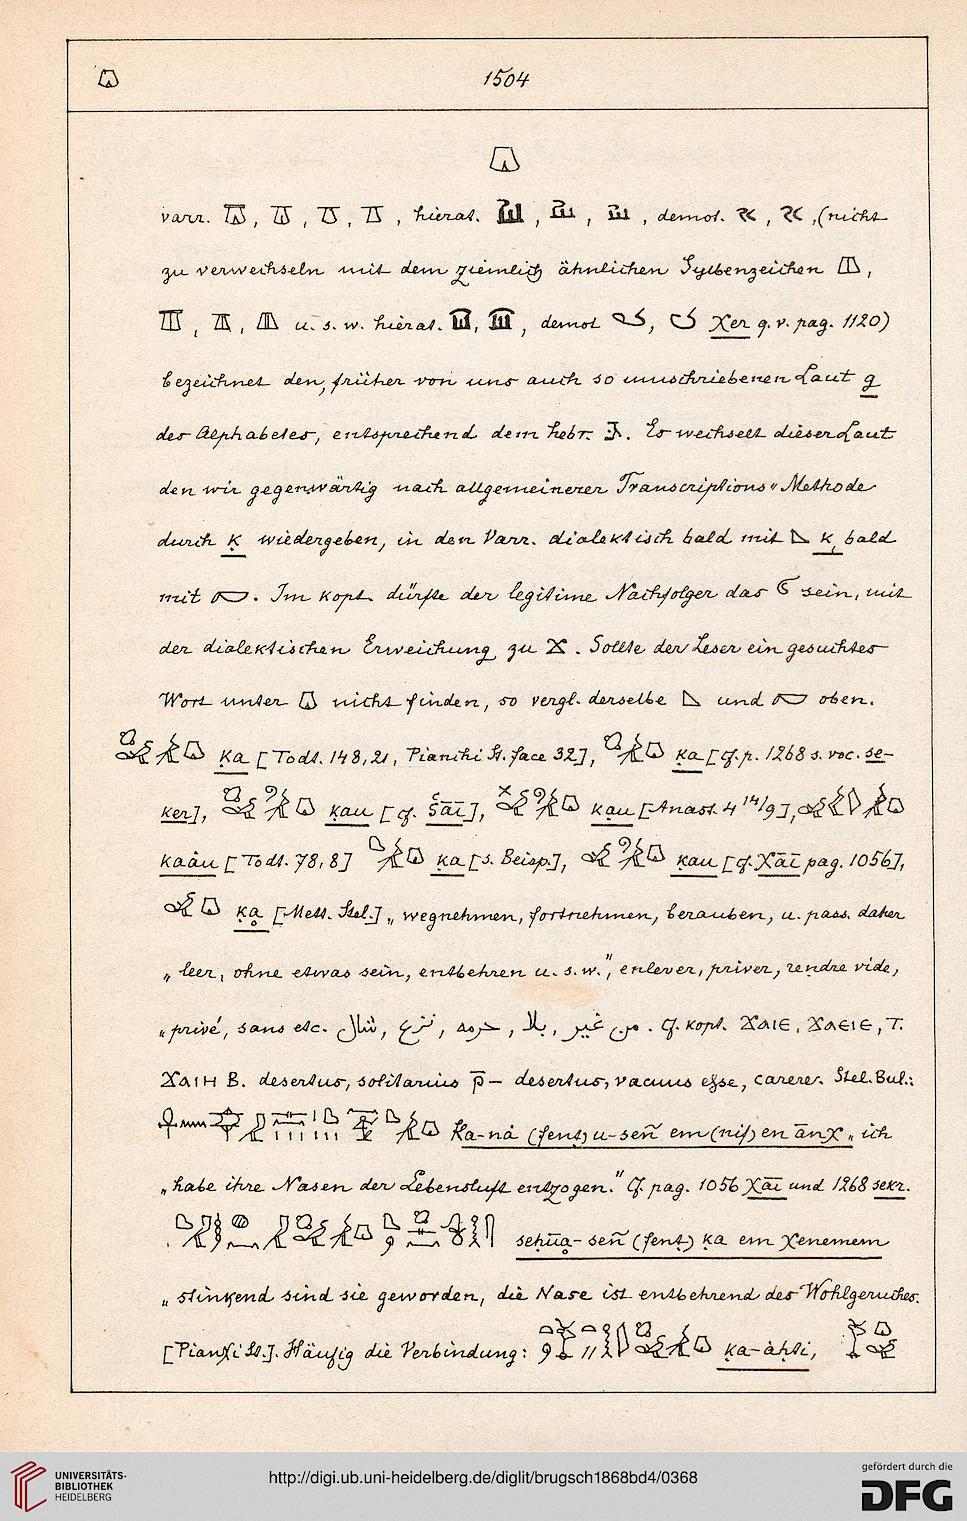 1504
varr. , hierat. , demot. , (nicht
zu verwechseln mit dem ziemlich ähnlichen Sylbenzeichen ,
u. s. w. hierat. , demot , χer q. v. pag. 1120)
bezeichnet den, früher von uns auch so umschriebenen Laut g
des Alphabetes, entsprechend dem hebr. ג. Es wechselt dieser Laut
den wir gegenwärtig nach allgemeinerer Transcriptions-Methode
durch ḳ wiedergeben, in den Varr. dialektisch bald mit k, bald
mit . Im kopt. dürfte der legitime Nachfolger das ϭ sein, mit
der dialektischen Erweichung zu ϫ. Sollte der Leser ein gesuchtes
Wort unter nicht finden, so vergl. derselbe und oben.
ḳa [Todt. 148,21, Pianchi St. face 32], ḳa [cf. p. 1268 s. voc. se-
ker], ḳau [cf. ], ḳau [Anast. 4 14/9],
kaáu [Todt. 78,8] ḳa [s. Beisp.], ḳau [cf. χāī pag. 1056],
ḳa [Mett. Stel.] „wegnehmen, fortnehmen, berauben, u. pass. daher
„leer, ohne etwas sein, entbehren u. s. w.", enlever, priver, rendre vide,
„privé, sans etc. شال, نزع, حرمه, بلا, من غير. Cf. kopt. ϫⲁⲓⲉ, ϫⲁⲉⲓⲉ, T.
ϫⲁⲓⲏ B. desertus, solitarius p̄— desertus, vacuus esse, carere. Stel. Bul.:
ḳa-ná (fenṭ) u-sen em (nif) en ānχ „ich
„habe ihre Nasen der Lebensluft entzogen." Cf. pag. 1056 χāī und 1268 sekr.
seḥūa-sen (fenṭ) ḳa em χenemem
„stinkend sind sie geworden, die Nase ist entbehrend des Wohlgeruches.
[Pianχi St.]. Häufig die Verbindung: ḳa-áḥti,
UNIVERSITÄTS-
BIBLIOTHEK
HEIDELBERG
http://digi.ub.uni-heidelberg.de/diglit/brugsch1868bd4/0368
gefördert durch die
DFG